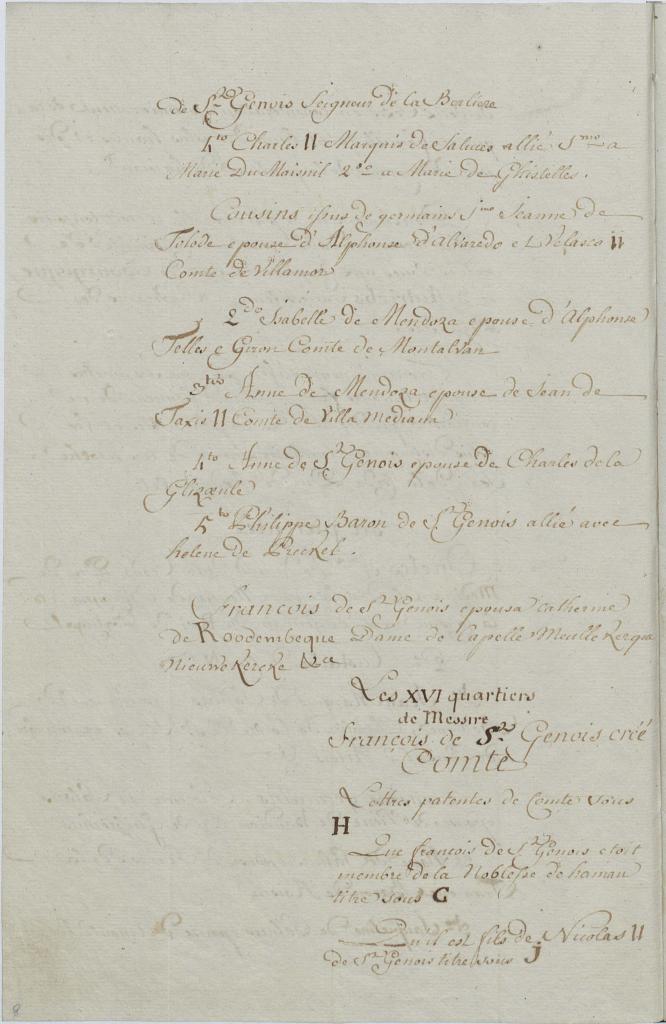 de St Genois Seigneur de la Berliere
4to Charles II Marquis de Saluces allié 1mo a
Marie Du Maisnil 2do a Marie de Ghistelles.
Cousins issus de germains 1mo Jeanne de
Tolode epouse d'Alphonse d'Alvaredo et Velasco II
Comte de Villamor
2do Isabelle de Mendoza epouse d'Alphonse
Telles e Giron Comte de Montalvan
3tio Anne de Mendoza epouse de Jean de
Taxis II Comte de Villa Mediana
4to Anne de St Genois epouse de Charles de la
5to Philippe Baron de St Genois allié avec
helene de Preckel.
François de St Genois epousa Catherine
de Roodembeque Dame de Capelle Meullekerque
Nieuwekercke &ce
Les XVI quartiers
de Messire
François de St Genois créé
Comte
Lettres patentes de Comte sous
H
Que françois de St Genois etoit
membre de la Noblesse de hainau
titre sous G
Qu'il est fils de Nicolas II
de St Genois titre sous J
8